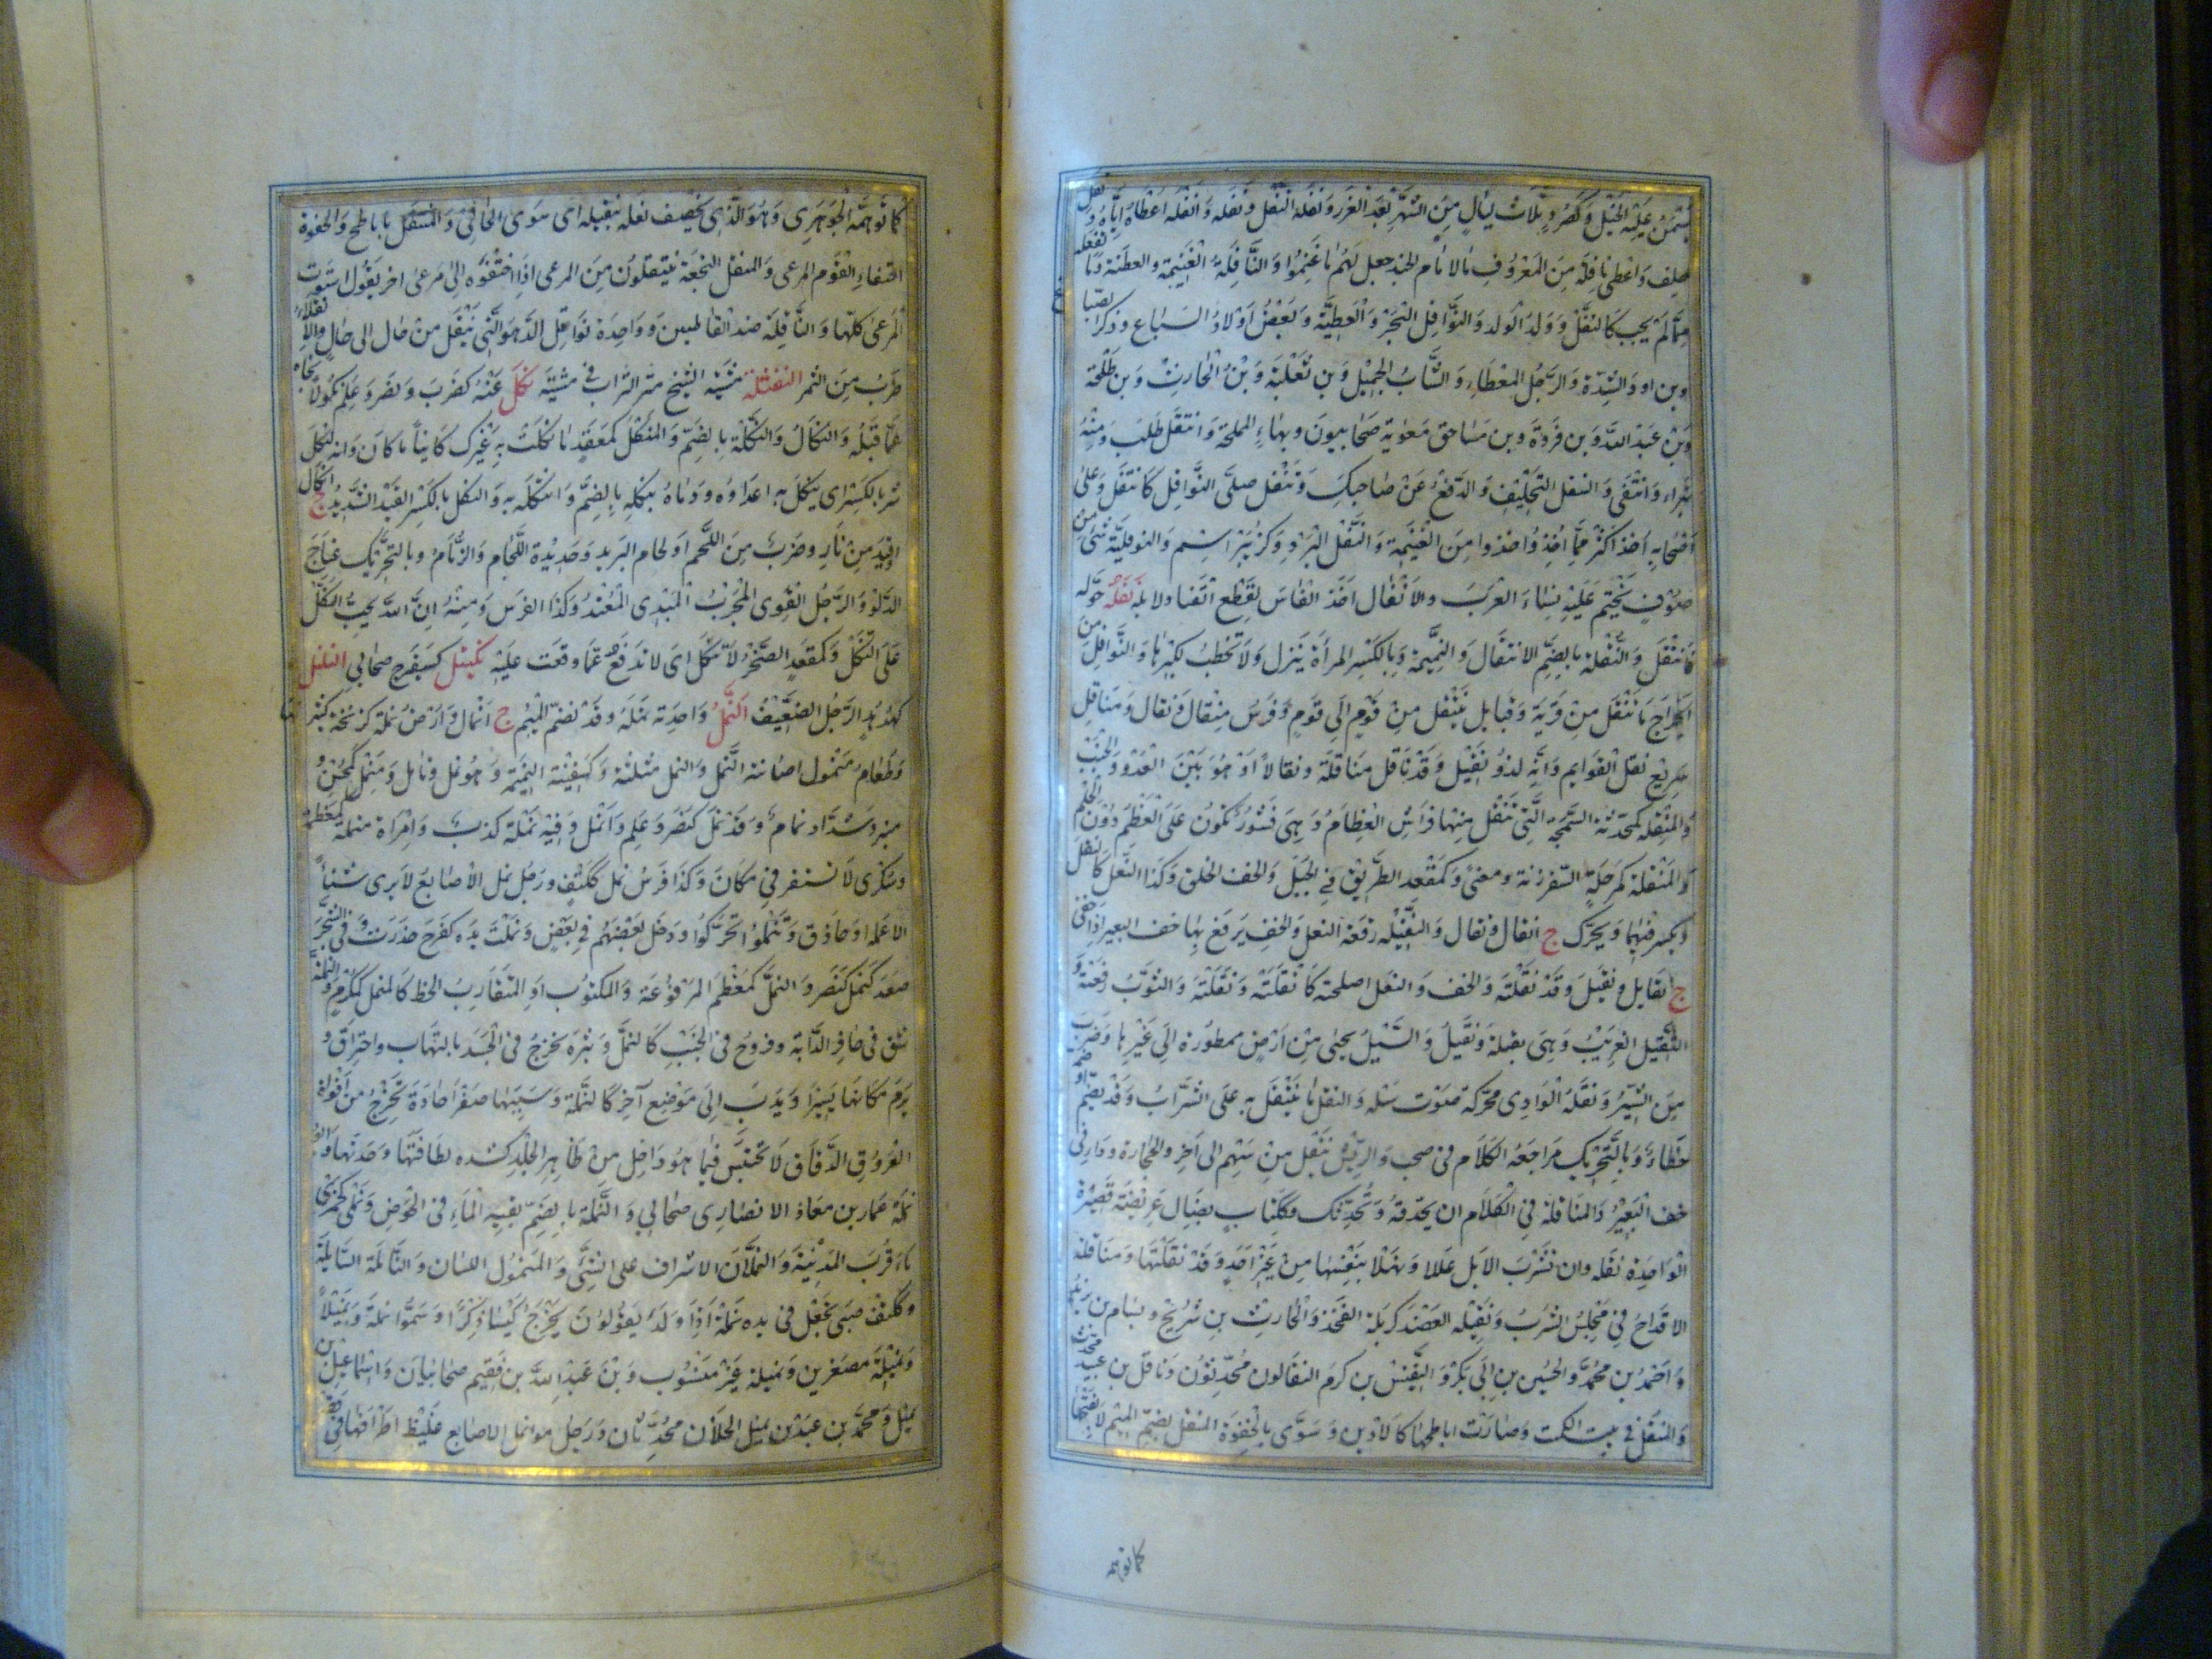 عليه الخيل وكصرد ثلاث ليال من الشهر بعد الغرر ونفله النفل ونفله وانفله اعطاه اياه ونفل
حلف واعطى نافلة من المعروف والامام الجند جعل لهم ما غنموا والنافلة الغنيمة والعطية وما تفعله
مما لم يجب كالنفل وولد الولد والنوافل البحر والعطية وبعض اولاد السباع وذكر
والشدة والرجل المعطاء والشاب الجميل وبن ثعلبة وبن الحارث وبن طلحة
وبن عبد الله وبن فروة وبن مساحق معوية صحابيون وبهاء المملحة وانتفل طلب ومنه
تبراء وانتفى والنفل التحليف والدفع عن صاحبك وتنفل صلى النوافل كانتفل وعلى
اصحابه اخذ اكثر مما اخذوا من الغنيمة والنفل البرد وكزبير اسم والنوفلية شئ من
صوف تختم عليه نساء العرب والانفال اخذ الفاس يقطع القتاد لابله نقله حوله
فانتقل والنقلة بالضم الانتقال والنميمة وبالكسر المرأة تترك ولا تخطب لكبرها والنواقل من
الخراج ما ينقل من قرية وقبايل تنتقل من قوم الى قوم وفرس منقال ونقال ومناقل
سريع نقل القوايم وانه لذو نقيل وقد ناقل مناقلة ونقالا او هو بين العدو والخبب
والمنقله كمحدثة الشجة التي تنقل منها فراش العظام وهي قشور تكون على العظم دون اللحم
والمنقلة كمرحلة السفر زنة ومعنى وكمقعد الطريق في الجبل والخف الخلق وكذا النعل كالنقل
وبكسر فيهما ويحرك ج انقال ونقال والنقيلة رقعة النعل والخف يرقع بها خف البعير اذا حفى
ج نقايل ونقيل وقد نقلته والخف والنعل اصلحته كانقلته ونقلته والثوب رقعته و
النقيل الغريب وهي نقيلة ونقيل والسيل يجئ من ارض ممطورة الى غيرها وضرب
من السير ونقلة الوادى محركة صوت سيله والنقل ما يتنقل به على الشراب وقد يضم او ضمه
خطاء وبالتحريك مراجعة الكلام في صخب والريش ينقل من سهم الى اخر والحجارة وداء في
خف البعير والمناقلة في الكلام ان تحدثه وتحدثك وككتاب نصال عريضة قصيرة
الواحدة نقله وان تشرب الابل عللا ونهلا بنفسها من غير احد وقد نقلتها ومناقلة
الاقداح في مجلس الشرب ونقيلة العضد كربلة الفخذ والحارث بن شريح وبسام بن يزيد
واحمد بن محمد والحسين بن ابى بكر والنفيس بن كرم النقالون محدثون وناقل بن عبيد محدث
والمنقل في بيت الكميت وصارت اباطحها كالارين وسوى بالحفوة المنقل بضم الميم لا بفتحها
كما توهم
كما توهمه الجوهرى وهو الذى يخصف نعله بنقيله اى سوى الحافي والمنتقل باباطح والحفوة
احتفاء القوم المرعى والمنقل النجعة ينتقلون من المرعى اذا احتفوه الى مرعى اخر يقول استوت
المرعى كلها والناقلة ضد القاطنين وواحدة نواقل الدهر التي تنقل من حال الى حال
ضرب من التمر النقثلة مشية الشيخ يثير التراب في مشيته نكل عنه كضرب ونصر وعلم نكولا
عما قبله والنكال والنكلة بالضم والمنكل كمقعد ما نكلت به غيرك كاينا ما كان وانه لنكل
شر بالكسر اى ينكل به اعداؤه ورماه بنكله بالضم والنكل بالكسر القيد الشديد ج انكال
او قيد من نار وضرب من اللجم او لجام البريد وحديدة اللجام والزمام وبالتحريك عناج
الدلو والرجل القوى المجرب المبدى المعيد وكذا الفرس ومنه ان الله يحب النكل
على النكل وكمقعد الصخر لا تنكل اى لا تدفع عما وقعت عليه نكيتل كسفرجل صحابي النلنل
كهدهد الرجل الضعيف النمل واحدته نملة وقد تضم الميم ج نمال وارض نملة كزنخة كثيرتها
وطعام منمول اصابته النمل والنمل مثلثة وكسفينة النميمة وهو نمل ونامل ومنمل كمحسن و
منبر وشداد نمام وقد نمل كنصر وعلم وانمل وفيه نملة كذب وامراة منملة كمعظمة
وسكرى لا تستقر في مكان وكذا فرس نمل ككتف ورجل نمل الاصابع لا يرى شيئا
الا عمله او حاذق وتنملوا تحركوا ودخل بعضهم في بعض ونملت يده كفرح خدرت وفي الشجر
صعد كنمل كنصر والنمل كمعظم المرفوعة والمكتوب او المتقارب الخط كالمنمل كمكرم والنملة
شق في حافر الدابة وقروح في الجنب كالنمل وبثرة تخرج في الجسد بالتهاب واحتراق و
يرم مكانها يسيرا ويدب الى موضع آخر كالنملة وسببها صفراء حادة تخرج من افواه
العروق الدقاق لا تحتبس فيما هو داخل من ظاهر الجلد لشدة لطافتها وحدتها وابو
نملة عمار بن معاذ الانصارى صحابي والنملة بالضم بقية الماء في الحوض ونملى كجمزى
ماء قرب المدينة والنملان الاشراف على الشئ والمنمول اللسان والناملة السايلة
وككتف صبى تجعل في يده نملة اذا ولد يقولون يخرج كيسا ذكرا وسموا نملة ونميلا
ونميلة مصغرين ونميلة غير منسوب وبن عبد الله بن فقيم صحابيان واسماعيل بن
نميل ومحمد بن عبد بن نميل الخلان محدثان ورجل موانمل الاصابع غليظ اطرافها في